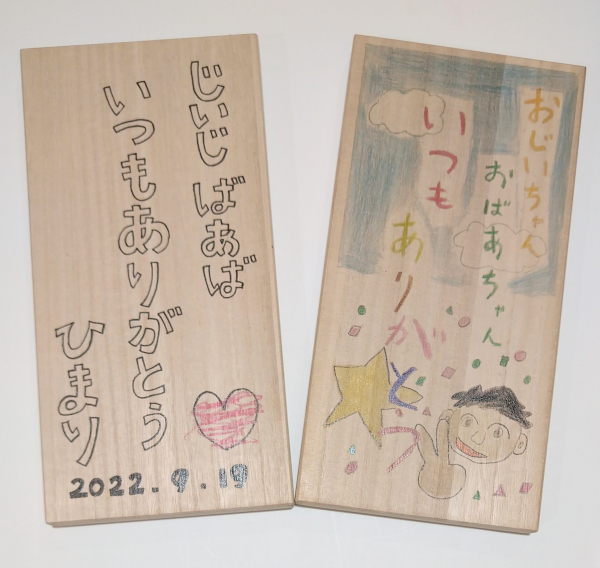 じいじ ばあば
いつもありがとう
ひまり
2022.9.19
おじいちゃん
おばあちゃん
いつも
ありがとう